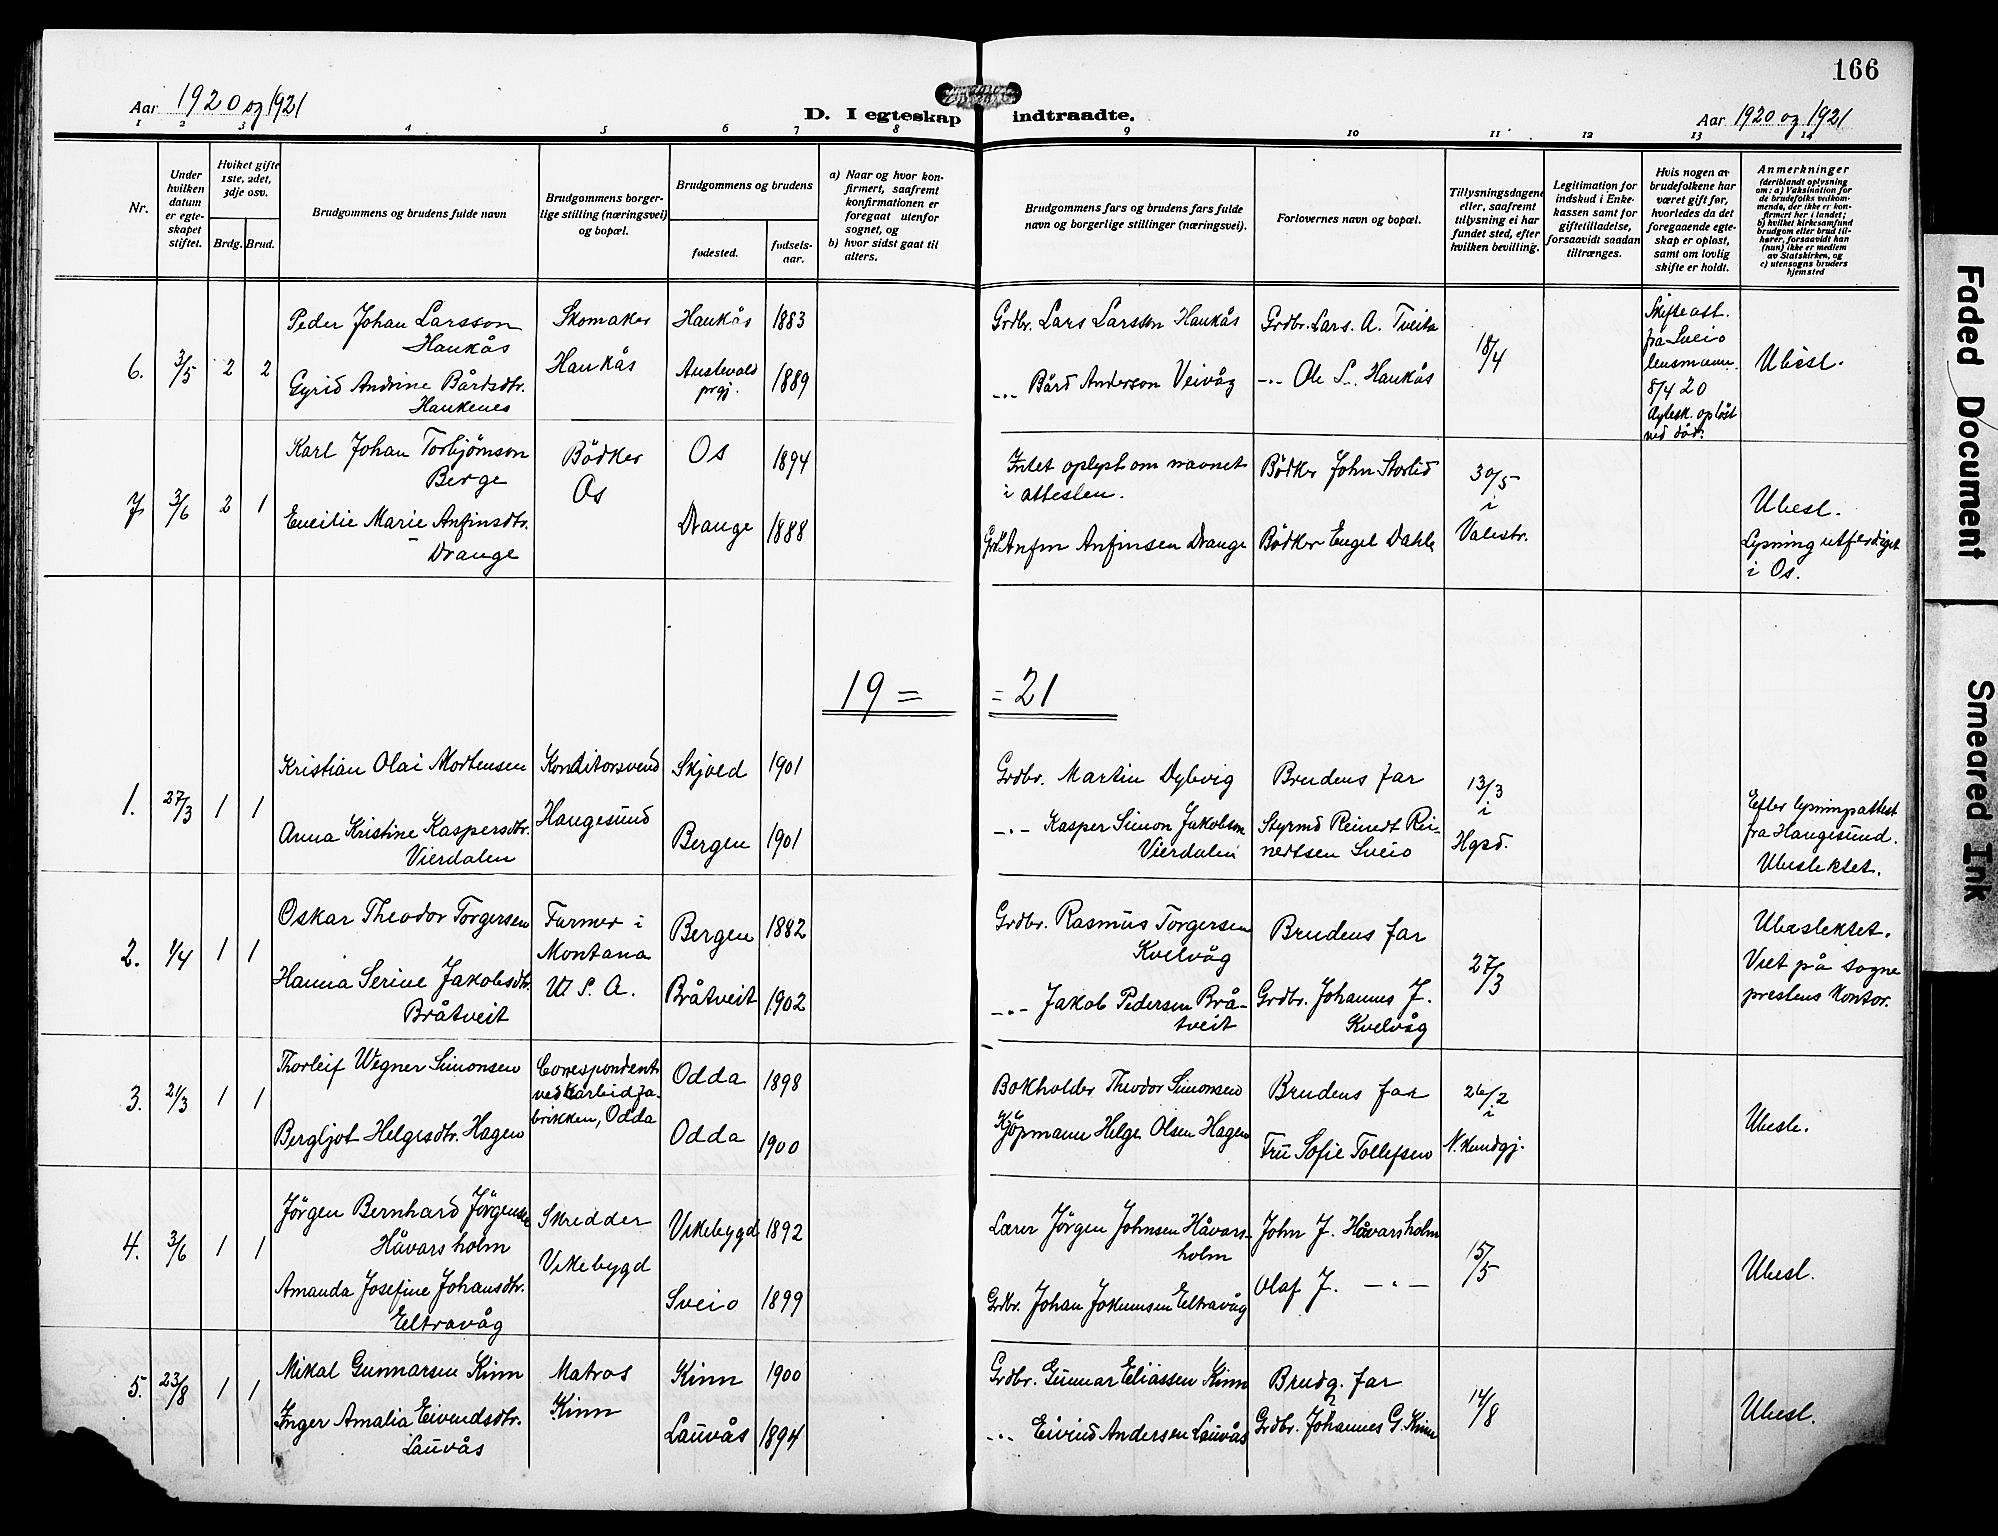 166
Aar 1920 og 1921
D. I egteskap indtraadte.
Aar 1920 og 1921
1 2 3 4 5 6 7 8 9 10 11 12 13 14
Nr.
Under hvilken datum er egteskapet stiftet.
Hvilket gifte 1ste, 2det, 3dje osv.
Brdg. Brud.
Brudgommens og brudens fulde navn
Brudgommens borgerlige stilling (næringsvei) og bopæl.
Brudgommens og brudens
fødested.
fødselsaar.
a) Naar og hvor konfirmert, saafremt konfirmationen er foregaat utenfor sognet, og
b) hvor sidst gaat til alters.
Brudgommens fars og brudens fars fulde navn og borgerlige stillinger (næringsvei).
Forlovernes navn og bopæl.
Tillysningsdagene eller, saafremt tillysning ei har fundet sted, efter hvilken bevilling.
Legitimation for indskud i Enkekassen samt for giftetilladelse, forsaavidt saadan tiltrænges.
Hvis nogen av brudefolkene har været gift før, hvorledes da det foregaaende egteskap er opløst, samt om lovlig skifte er holdt.
Anmerkninger
(deriblandt oplysning om: a) Vaksination for de brudefolks vedkommende, der ikke er konfirmert her i landet;
b) hvilket kirkesamfund brudgom eller brud tilhører, forsaavidt han (hun) ikke er medlem av Statskirken, og
c) utensogns bruders hjemsted
6. 3/5 2 2
Peder Johan Larsson
Haukås
Gyrid Andrine Bårdsdtr.
Haukenes
Skomaker
Haukås
Haukås 1883
Austevold prgj. 1889
Grdbr. Lars Larsson Haukås
-"- Bård Anderson Veivåg
Grdbr. Lars. A. Tveita
-"- Ole L. Haukås
18/4
Skifteatt.
fra Sveio
lensmann
8/4 20
Egtesk. opløst
ved død.
Ubesl.
7 3/6 2 1
Karl Johan Torbjørnson
Berge
Emilie Marie Anfinsdtr.
Drange
Bødker
Os
Os 1894
Drange 1888
Intet oplyst om navnet
i attesten.
Grdr. Anfin Anfinsen Drange
Bødker John Storlid
Bødker Engel Dahle
30/5
i
Valestr.
Ubesl.
Lysning utferdiget
i Os.
19 = = 21
1. 27/3 1 1
Kristian Olai Mortensen
Anna Kristine Kaspersdtr.
Vierdalen
Konditorsvend
Haugesund
Skjold 1901
Bergen 1901
Grdbr. Martin Dybvig
-"- Kasper Simon Jakobson
Vierdalen
Brudens far
Styrmd Reinedt Reinertsen Sveio
13/3
i
Hgsd.
Efter lysningsattest
fra Haugesund.
Ubeslektet.
2. 1/4 1 1
Oskar Theodor Torgersen
Hanna Serine Jakobsdtr.
Bråtveit
Farmer i
Montana
U. S. A.
Bergen 1882
Bråtveit 1902
Grdbr. Rasmus Torgersen
Kvelvåg
-"- Jakob Pedersen Bråtveit
Brudens far
Grdbr. Johannes J.
Kvelvåg
27/3
Ubeslektet.
Viet på sogne
prestens kontor.
3. 21/3 1 1
Thorleif Wegner Simonsen
Bergljot Helgesdtr. Hagen
Correspondent
ved Karbidfabrikken, Odda
Odda 1898
Odda 1900
Bokholder Theodor Simonsen
Kjøpmann Helge Olsen Hagen
Brudens far
Fru Sofie Tollefsen
26/2
i
N. kundgj.
Ubesl.
4. 3/6 1 1
Jørgen Bernhard Jørgensen
Håvarsholm
Amanda Josefine Johansdtr.
Eltravåg
Skredder
Vikebygd
Vikebygd 1892
Sveio 1899
Lærer Jørgen Johnsen Håvarsholm
Grdbr. Johan Jokumsen Eltravåg
John J. Håvarsholm
Olaf J. -"-
15/5
Ubesl.
5. 23/8 1 1
Mikal Gunnarsen Kinn
Inger Amalia Eivendsdtr.
Lauvås
Matros
Kinn
Kinn 1900
Lauvås 1894
Grdbr. Gunnar Eliassen Kinn
-"- Eivind Andersen Lauvås
Brudg. far
Grdbr. Johannes G. Kinn
14/8
Ubesl.
Faded Document
Smeared Ink